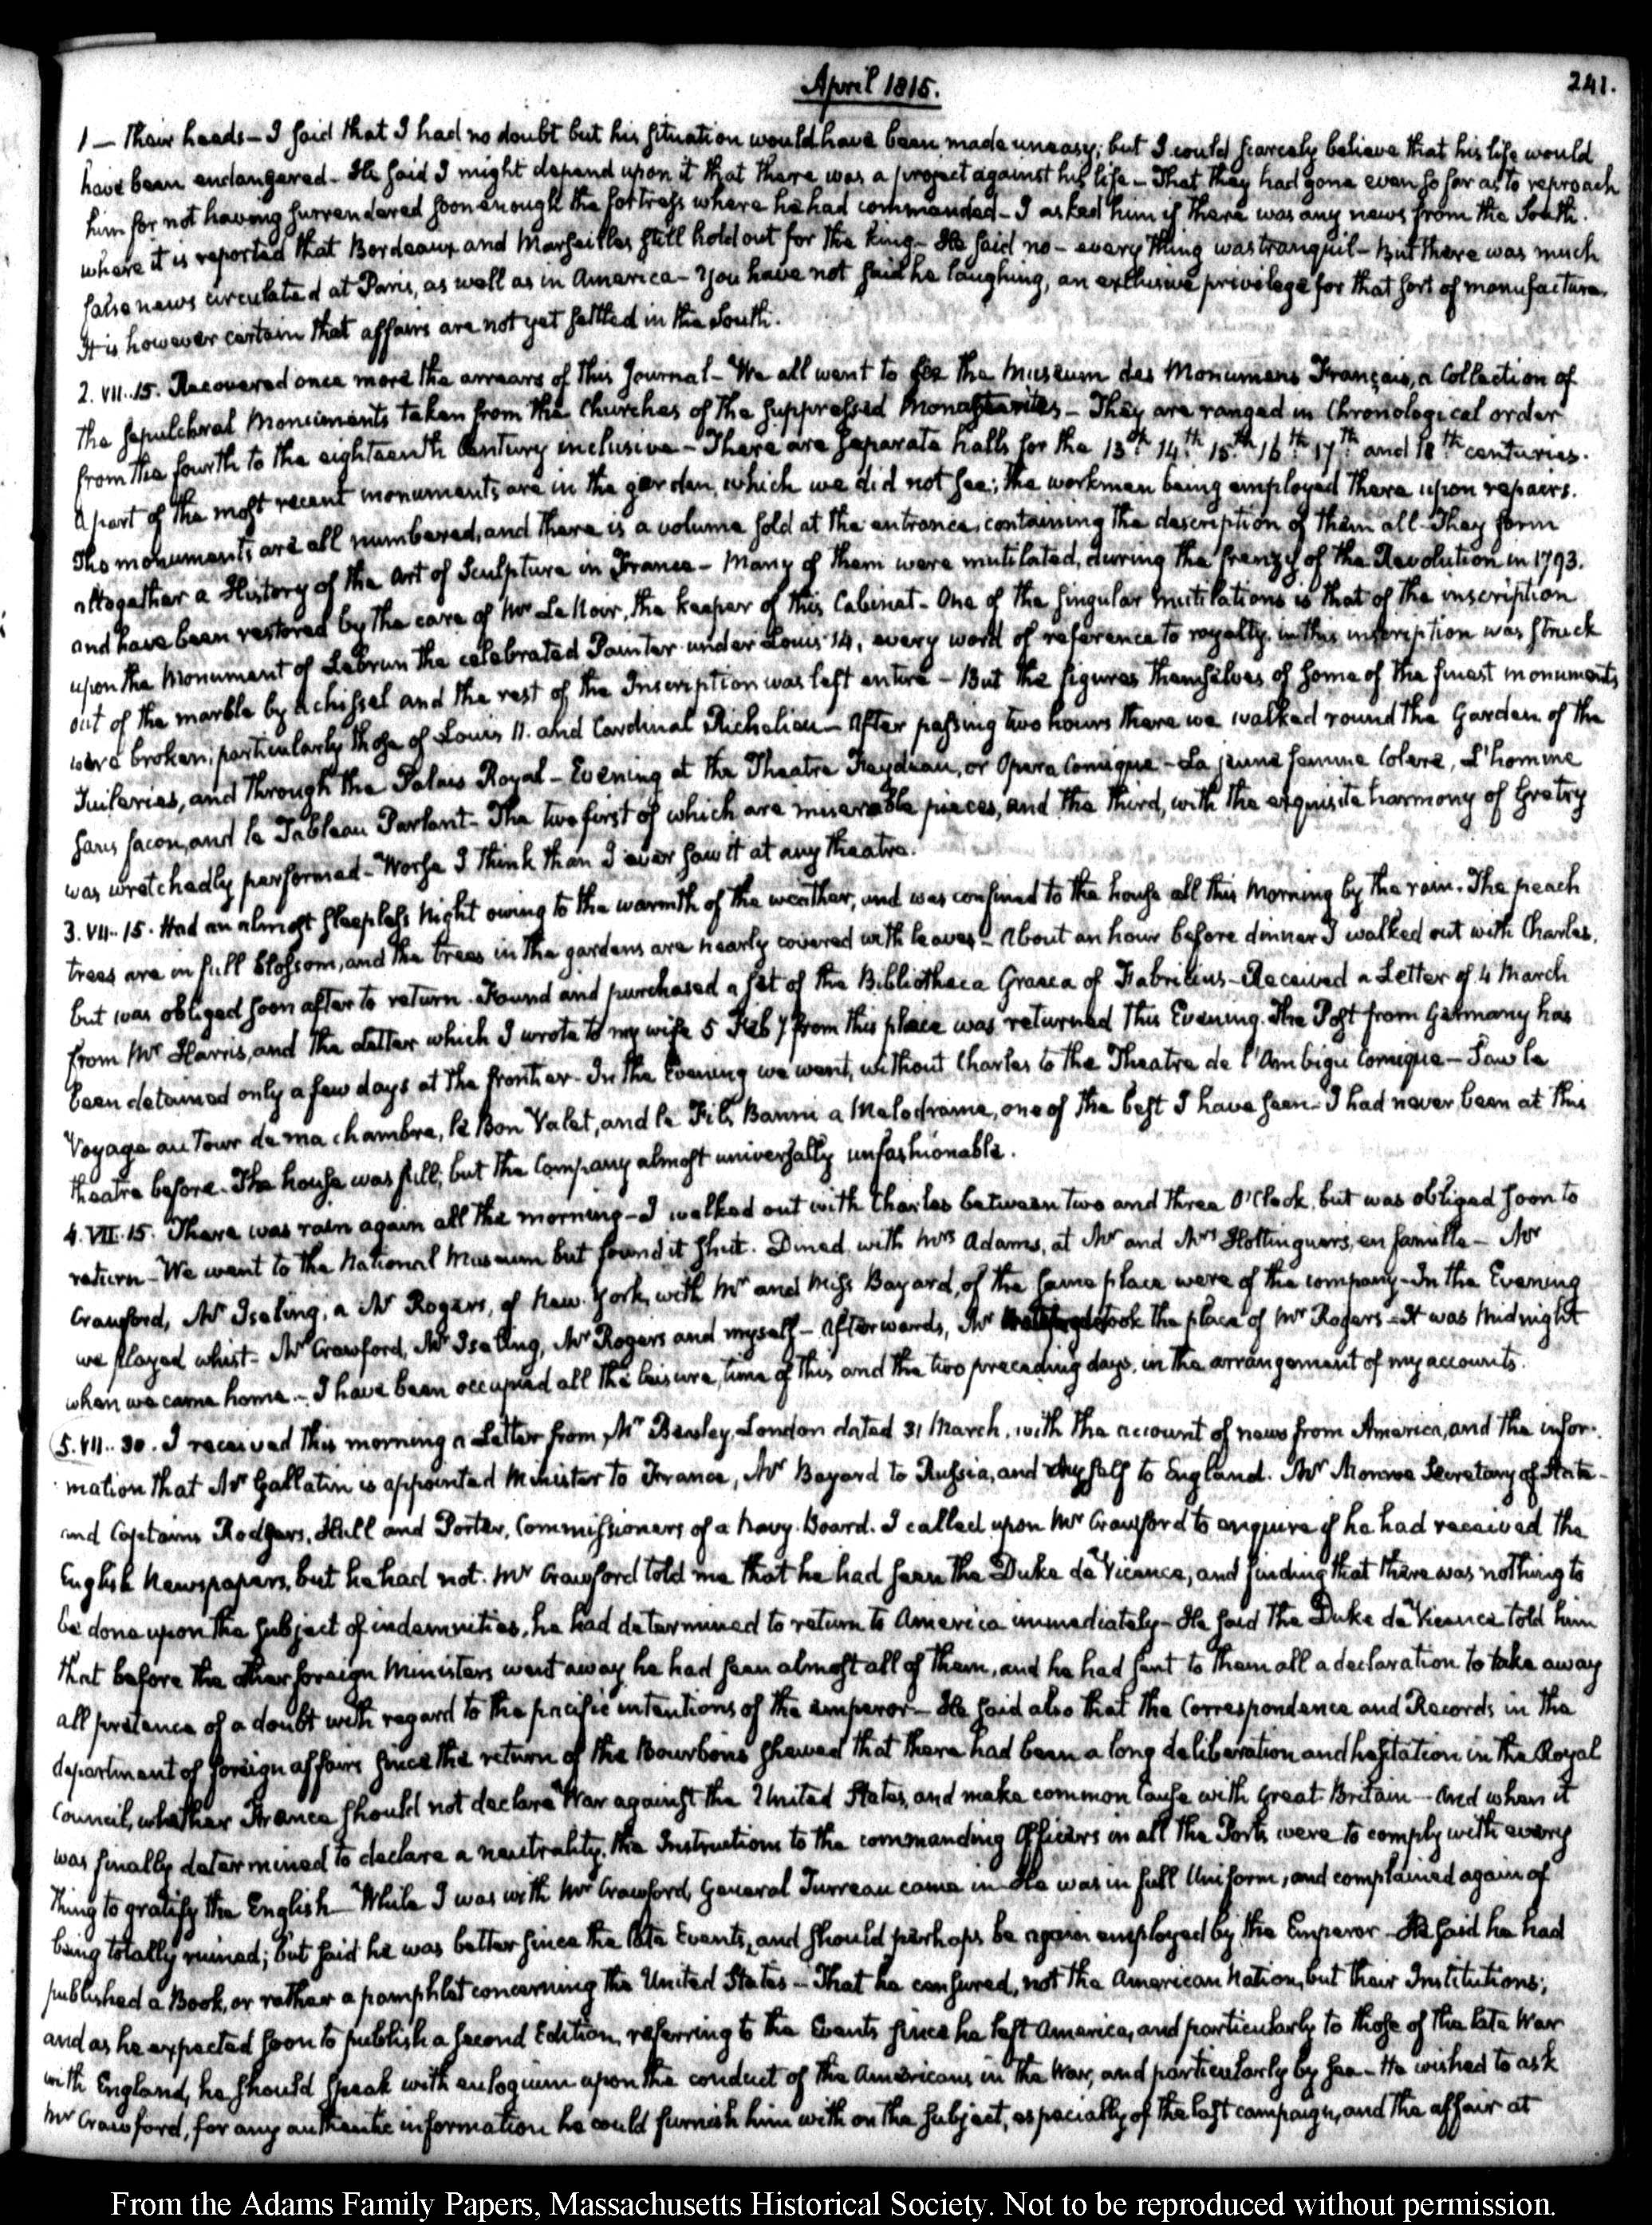 April 1815.
241.
1 — Their heads — I said that I had no doubt but his situation would have been made uneasy; but I could scarcely believe that his life would
have been endangered — He said I might depend upon it that there was a project against his life — That they had gone even so far as to reproach
him for not having surrendered soon enough the fortress where he had commanded — I asked him if there was any news from the South.
where it is reported that Bordeaux and Marseilles still hold out for the King — He said no — every thing was tranquil — But there was much
false news circulated at Paris, as well as in America — You have not said he laughing, an exclusive privilege for that sort of manufacture.
It is however certain that affairs are not yet settled in the South.
2. VII..15. Recovered once more the arrears of this Journal — We all went to see the Museum des Monumens Français, a Collection of
the sepulchral Monuments taken from the Churches of the suppressed Monasteries — They are ranged in Chronological order
from the fourth to the eighteenth Century inclusive — There are separate halls for the 13th. 14th. 15th. 16th. 17th. and 18th. centuries.
A part of the most recent monuments are in the garden, which we did not see; the workmen being employed there upon repairs.
The monuments are all numbered, and there is a volume sold at the entrance, containing the description of them all — They form
altogether a History of the Art of Sculpture in France — Many of them were mutilated, during the frenzy of the Revolution in 1793.
and have been restored by the care of Mr. Le Noir, the keeper of this Cabinet — One of the singular mutilations is that of the inscription
upon the Monument of Lebrun the celebrated Painter under Louis 14, every word of reference to royalty, in this inscription was struck
out of the marble by a chissel and the rest of the Inscription was left entire — But the figures themselves of some of the finest monuments
were broken; particularly those of Louis 11. and Cardinal Richelieu — After passing two hours there we walked round the Garden of the
Tuileries, and through the Palais Royal — Evening at the Theatre Feydeau, or Opera Comique — La jeune femme Colere, L'homme
sans facon, and le Tableau Parlant — The two first of which are miserable pieces, and the third, with the exquisite harmony of Gretry
was wretchedly performed — Worse I think than I ever saw it at any theatre.
3. VII.. 15. Had an almost sleepless Night owing to the warmth of the weather, and was confined to the house all this Morning by the rain. The peach
trees are in full blossom, and the trees in the gardens are nearly covered with leaves — About an hour before dinner I walked out with Charles.
but was obliged soon after to return. Found and purchased a set of the Bibliotheca Graeca of Fabricius — Received a Letter of 4 March
from Mr. Harris, and the Letter which I wrote to my wife 5 Feby from this place was returned this Evening. The Post from Germany has
been detained only a few days at the frontier — In the Evening we went, without Charles to the Theatre de l'Ambigu Comique — Saw le
Voyage autour de ma chambre, le Bon Valet, and le Fils Banni a Melodrame, one of the best I have seen — I had never been at this
theatre before. The house was full; but the Company almost universally unfashionable.
4. VII. 15. There was rain again all the morning — I walked out with Charles between two and three O'Clock, but was obliged soon to
return — We went to the National Museum but found it shut. Dined with Mrs Adams, at Mr and Mrs Hottinguers, en famille — Mr
Crawford, Mr Iseling, a Mr Rogers, of New York, with Mr and Miss Bayard, of the same place were of the company — In the Evening
we played whist — Mr Crawford, Mr Iseling, Mr Rogers and myself — Afterwards, Mr took the place of Mr Rogers — It was Midnight
when we came home. — I have been occupied all the leisure time of this and the two preceding days, in the arrangement of my accounts.
5. VII.. 30. I received this morning a Letter from Mr Beasley, London dated 31 March, with the account of news from America, and the infor-
mation that Mr Gallatin is appointed Minister to France, Mr Bayard to Russia, and myself to England. Mr Monroe Secretary of State —
and Captains Rodgers, Hull and Porter, Commissioners of a Navy-Board. I called upon Mr Crawford to enquire if he had received the
English Newspapers, but he had not. Mr Crawford told me that he had seen the Duke de Vicence, and finding that there was nothing to
be done upon the subject of indemnities, he had determined to return to America immediately — He said the Duke de Vicence told him
that before the other foreign Ministers went away he had seen almost all of them, and he had sent to them all a declaration to take away
all pretence of a doubt with regard to the pacific intentions of the emperor — He said also that the Correspondence and Records in the
department of foreign affairs since the return of the Bourbons shewed that there had been a long deliberation and hesitation in the Royal
Council, whether France should not declare War against the United States, and make common cause with Great-Britain — And when it
was finally determined to declare a neutrality, the Instructions to the commanding Officers in all the Ports were to comply with every
thing to gratify the English — While I was with Mr Crawford, General Turreau came in — He was in full Uniform, and complained again of
being totally ruined; but said he was better since the late Events, and should perhaps be again employed by the Emperor — He said he had
published a Book, or rather a pamphlet concerning the United States — That he censured, not the American Nation, but their Institutions;
and as he expected soon to publish a second Edition, referring to the Events since he left America, and particularly to those of the late War
with England, he should speak with eulogium upon the conduct of the Americans in the War, and particularly by sea — He wished to ask
Mr Crawford, for any authentic information he could furnish him with on the subject, especially of the last campaign, and the affair at
From the Adams Family Papers, Massachusetts Historical Society. Not to be reproduced without permission.